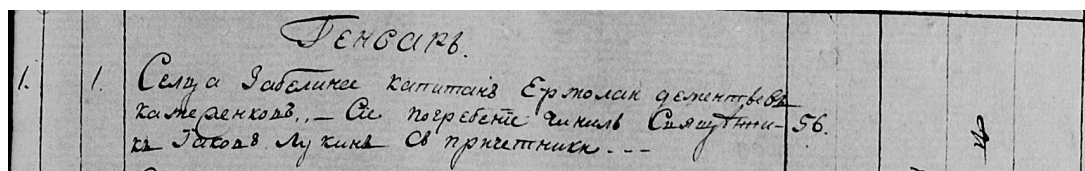 Генварь.
1. 1. Сельца Забелина капитанъ Ермолаи дементьевъ
Каменковъ,, — Сіе погребеніе чинилъ Священни- 56.
къ Іаковъ Лукинъ Съ причетники - - -